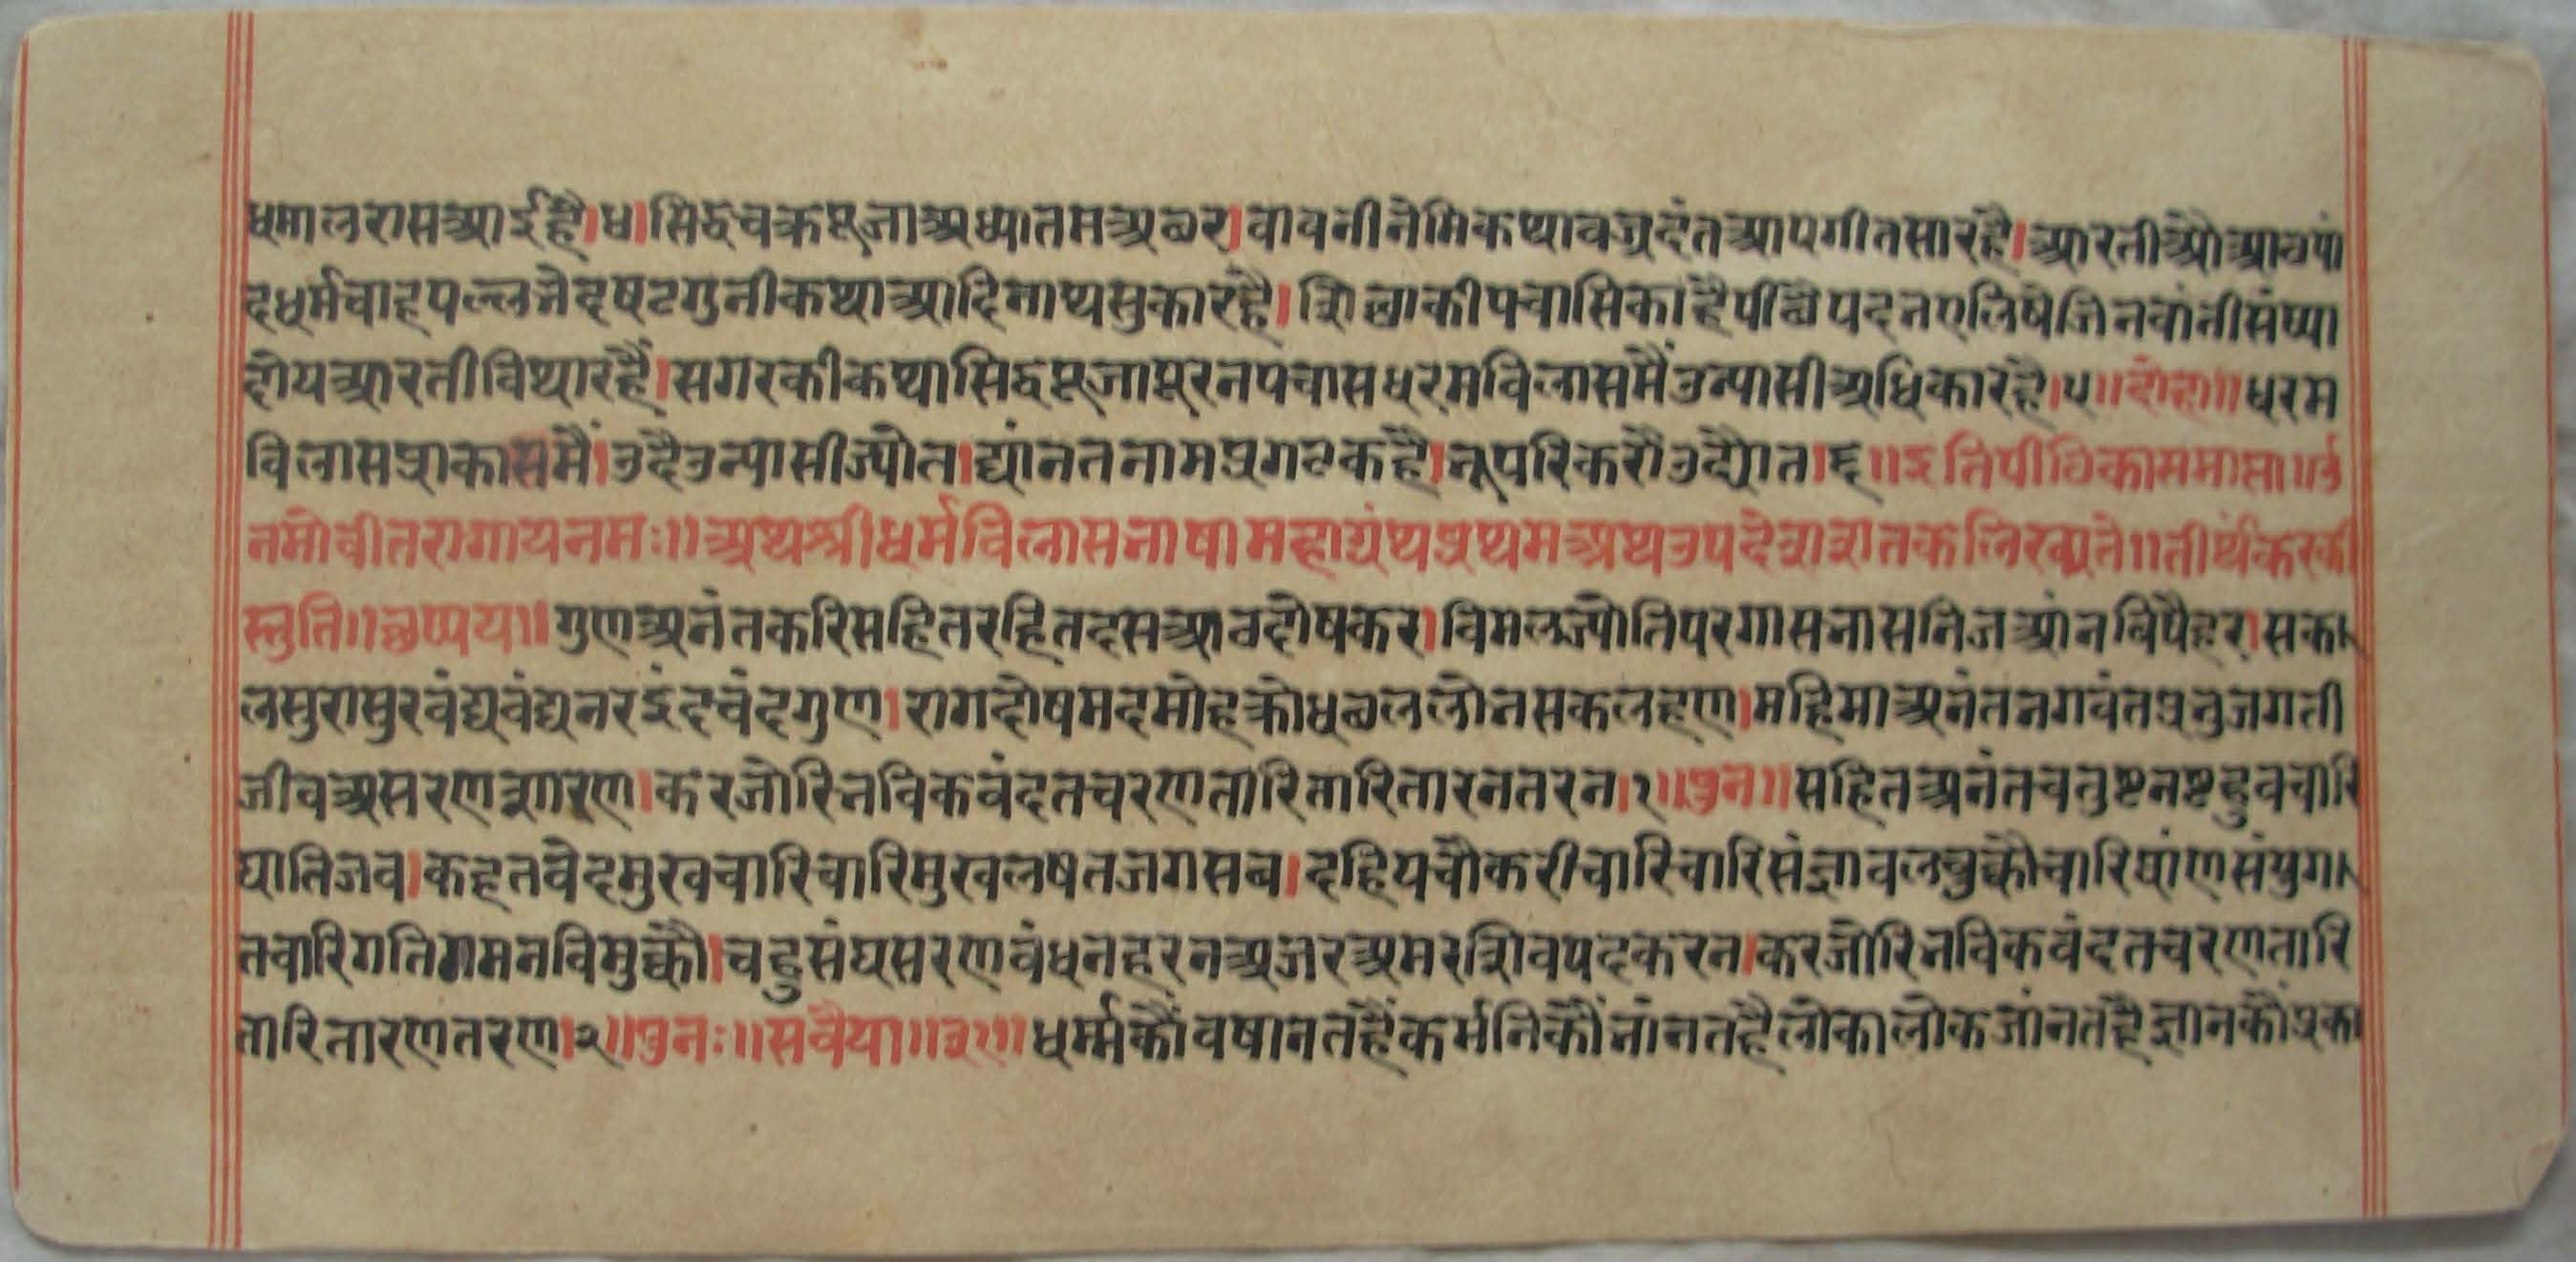 धमालरासआईहै।४।सिद्धचक्रपूजाअध्यातमअछर।वावनीनेमिकथावज्रदंतआपगीतसारहै।आरतीऔआठपां
दधर्मचाहपल्लनेदषटगुनीकथाआदिनाथसुकारहै।शिछाकीपचासिकाहैपींछैपदनएलिषेजिनवांनीसंष्या
दोयआरतीविथारहैं।सगरकीकथासिद्धपूजापूरनपचासधरमविलासमैंउन्यासीअधिकारहै।५॥दोहा॥धरम
विलासप्रकासमैं।उदैउन्यासीज्योत।द्यांनतनामप्रगटकहै।भूपरिकरौउद्योत।६॥इतिपीठिकासमाप्ता॥उं
नमोवीतरागायनमः॥अथश्रीधर्मविलासभाषामहाग्रंथप्रथमअथउपदेशशतकलिख्यते॥तीर्थंकरकी
स्तुति॥छप्पय॥गुणअनंतकरिसहितरहितदसआठदोषकर।विमलज्योतिपरगासभासनिजआंनविषैहर।सका
लसुरासुरवंद्यवंद्यनरइंदचंदगुण।रागदोषमदमोहक्रोधछललोभसकलहण।महिमाअनंतभगवंतप्रभुजगती
जीवअसरणशरण।करजोरिभविकवंदतचरणतारितारितारनतरन।१॥पुन॥सहितअनंतचतुष्टनष्टहुवचारि
घातिजव।कहतवेदमुखचारिचारिमुखलषतजगसब।दहियचौकरीचारिचारिसंज्ञावलचुक्कौचारिघांणसंयुगा
तचारिगतिगमनविमुक्कौ।चहुसंघसरणवंधनहरनअजरअमरशिवपदकरन।करजोरिभविकवंदतचरणतारि
तारितारणतरण।२॥पुनः॥सवैया॥३१॥धर्म्मकौंवषानतहैंकर्मनिकौंभांनतहैलोकालोकजांनतहैज्ञानकौंप्रका